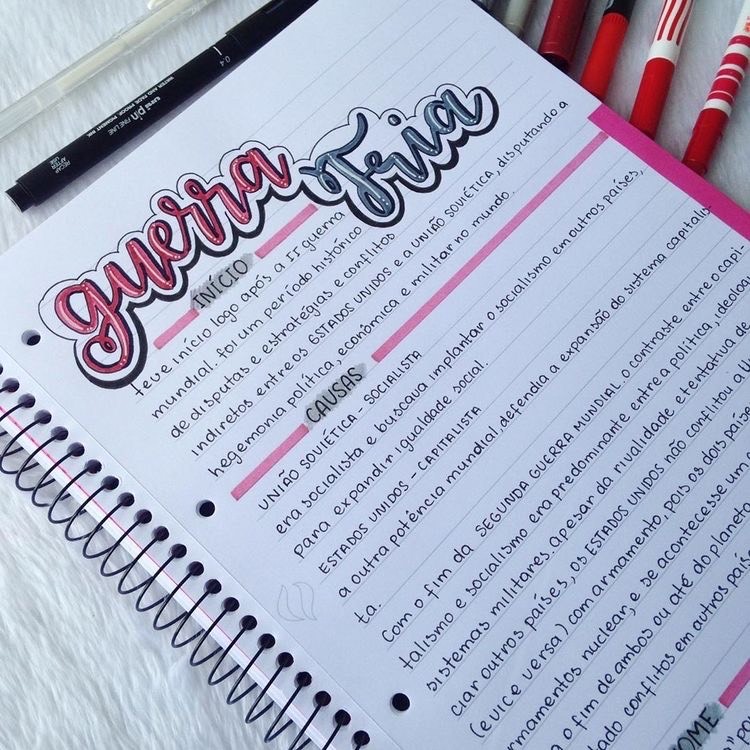 guerra Fria
INÍCIO
teve início logo após a II guerra
mundial. foi um período histórico
de disputas e estratégias e conflitos
indiretos entre os ESTADOS UNIDOS e a UNIÃO SOVIÉTICA, disputando a
hegemonia política, econômica e militar no mundo.
CAUSAS
UNIÃO SOVIÉTICA - SOCIALISTA
era socialista e buscava implantar o socialismo em outros países,
para expandir igualdade social.
ESTADOS UNIDOS - CAPITALISTA
a outra potência mundial, defendia a expansão do sistema capitalis-
ta.
Com o fim da SEGUNDA GUERRA MUNDIAL. o contraste entre o capi-
talismo e socialismo era predominante entre a política, ideolog
sistemas militares. apesar da rivalidade e tentativa de
ciar outros países, os ESTADOS UNIDOS não conflitou a U
(e vice versa) com armamento, pois os dois países
armamentos nuclear, e se acontecesse um
o fim de ambos ou até do planeta
ado conflitos em outros país
OME
uni pin FINE LINE
WATER AND FADE PROOF PIGMENT INK
0.4
RECAP
AFTER
USE